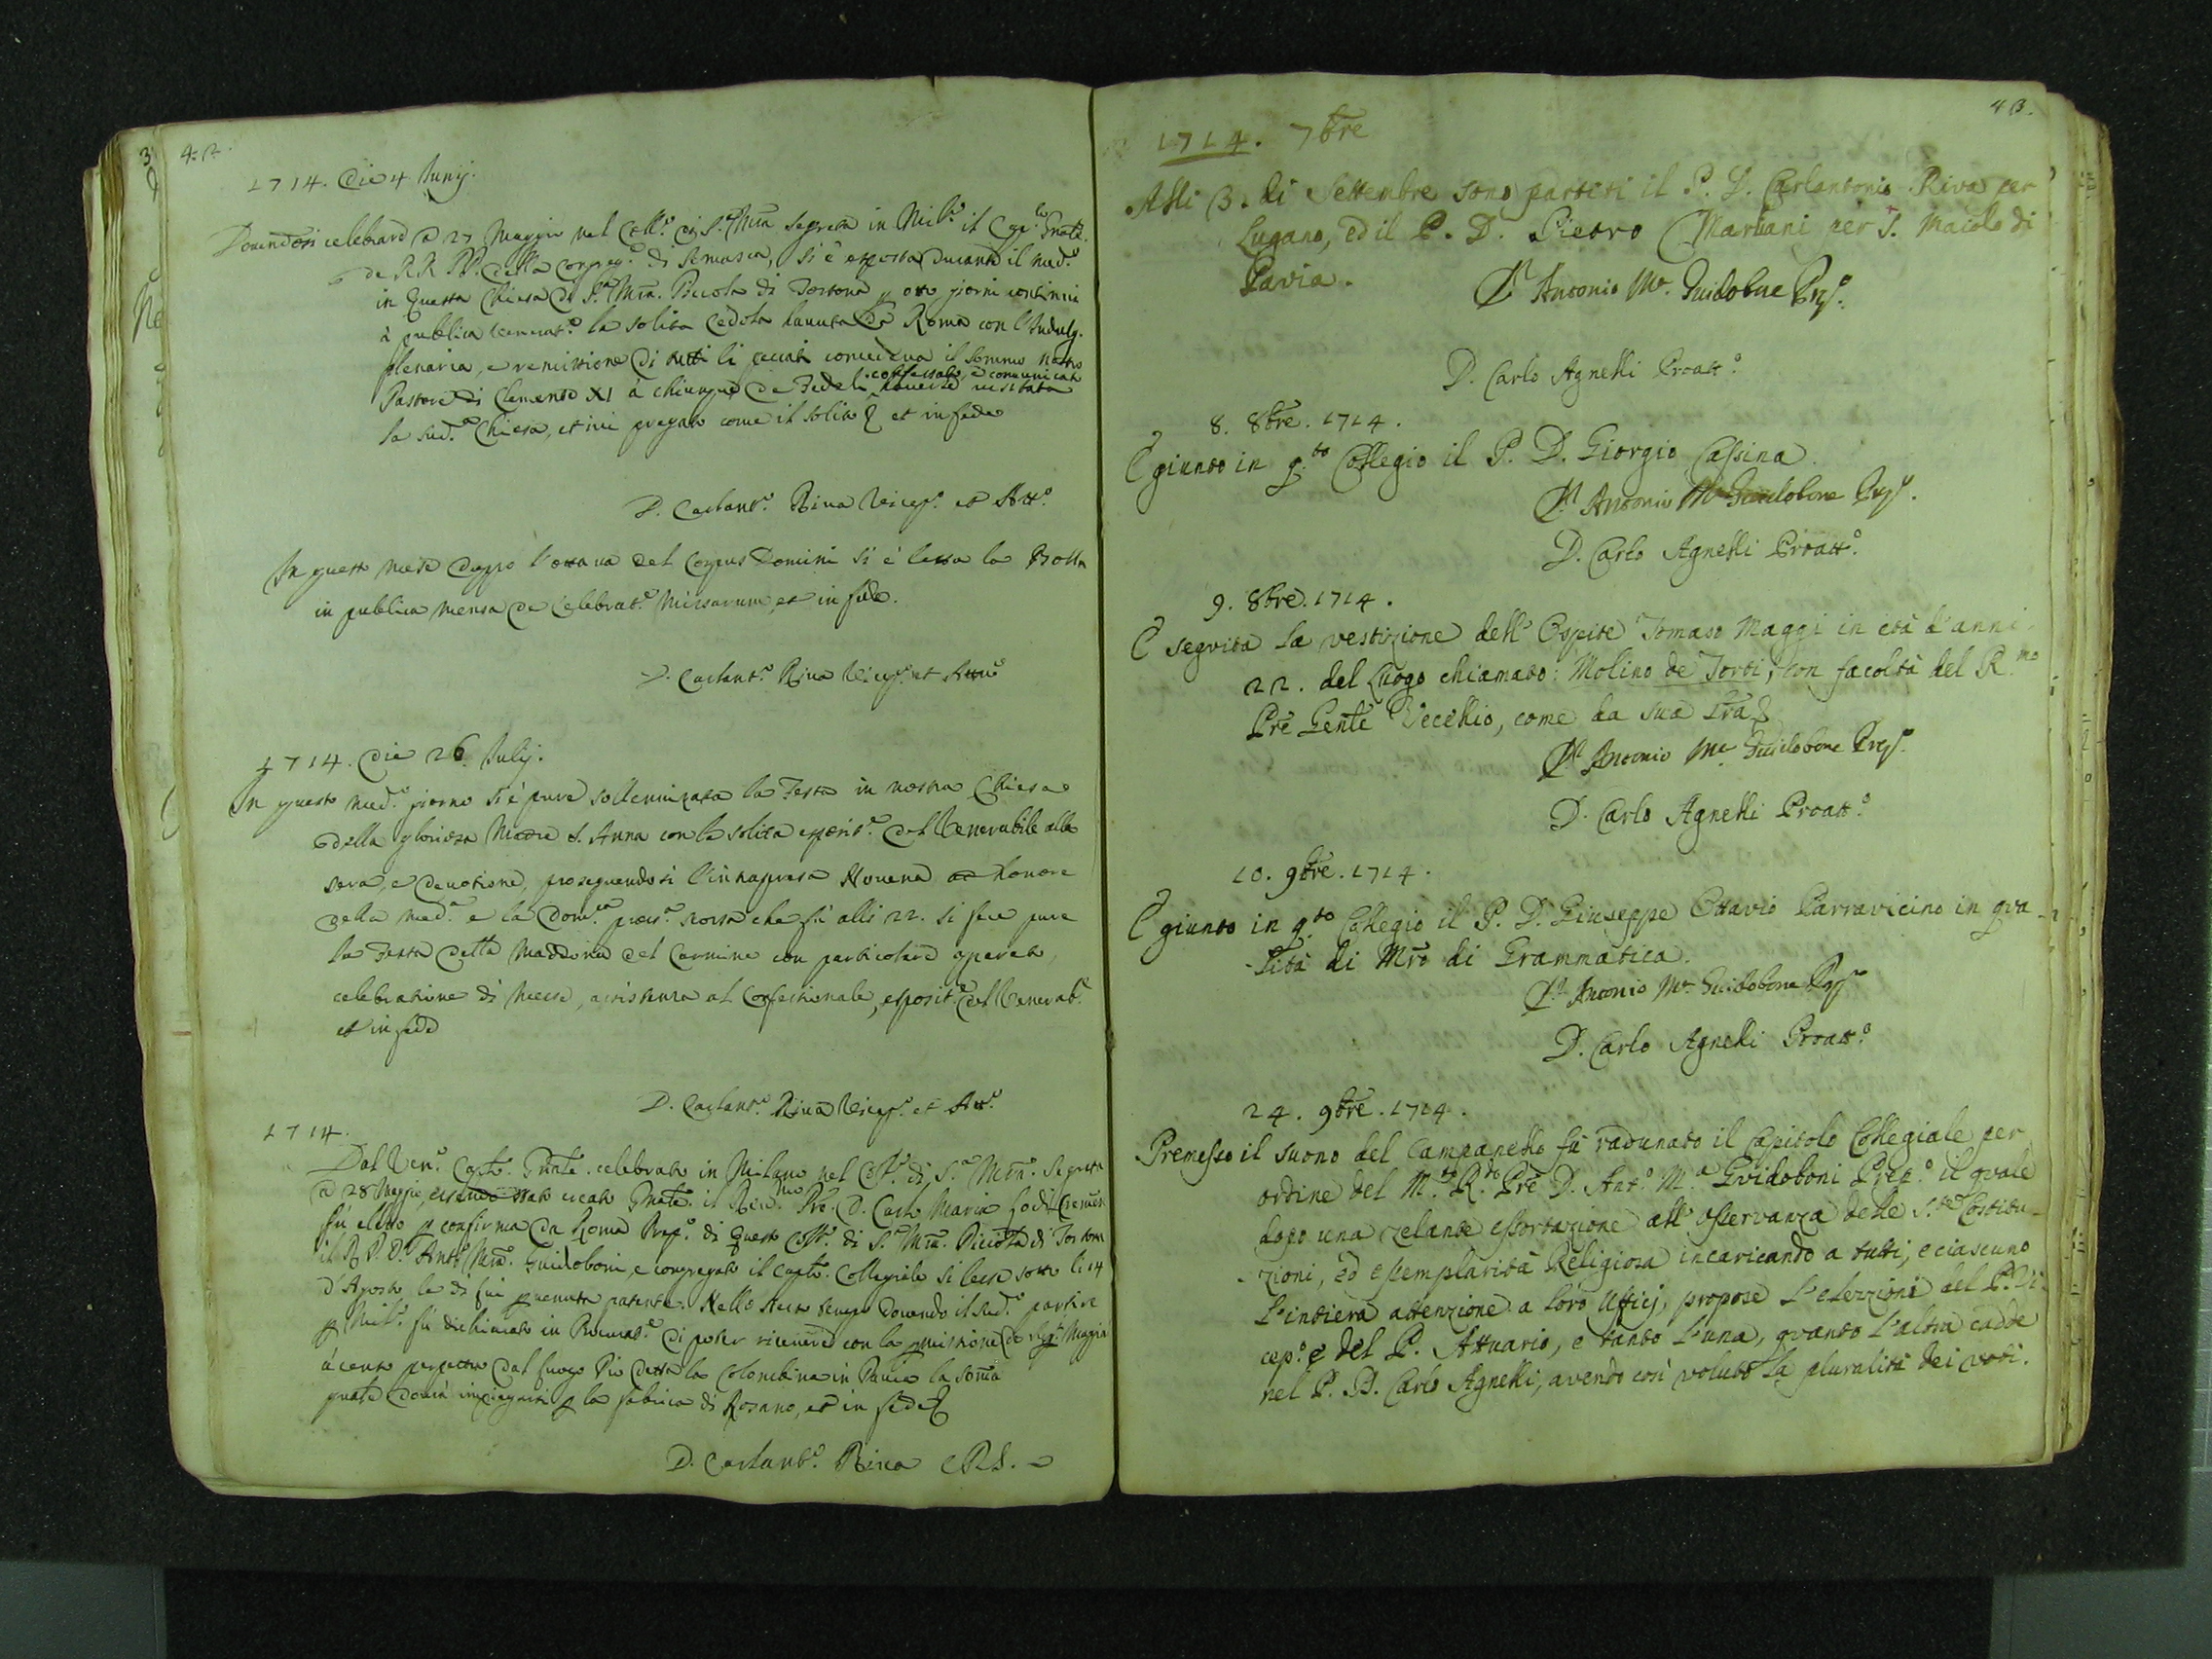 42.
1714. Die 4 Junij.
Douendosi celebrare a 27 Maggio nel Coll.º di S.ª Mra Segreta in Mil.º il Cap.lo Gnale
de RR PP. della Congreg.e di Somasca, si è esposta durante il med.º
in questa Chiesa di S.ta Mra. Piccola di Tortona p otto giorni continui
à publica venerat.e la solita Cedola hauuta da Roma con l'Indulg.
plenaria, e remissione di tutti li peccati concedeua il sommo nostro
Pastore di Clemente XI à chiunque de Fedeli confessato e comunicato hauesse uisitata
la sud.ª Chiesa, et iui pregato come il solito et in fede
D. Carlant.º Riua Vicep.º et Att.º
In questo mese doppo l'ottaua del Corpus Domini si è letta la Bolla
in publica mensa de Celebrat.e Missarum, et in fede.
D. Carlant.º Riua Vicep.º et Attuº
1714. Die 26. Julij.
In questo med.º giorno si è pure sollennizata la Festa in nostra Chiesa
della gloriosa Madre S. Anna con la solita esposit.e del Venerabile alla
sera, e deuotione, proseguendosi l'intrapresa Nouena ad honore
della med.ª e la Dom.ca pross.ª scorsa che fù alli 22. si fece pure
la Festa della Maddona del Carmine con particolare apparato,
celebratione di Messe, assistenza al Confessionale, esposit.e del Venerab.e
et in fede
D. Carlant.º Riua Vicep.º et Att.º
1714.
Dal Ven.e Capto. Gnale. celebrato in Milano nel Coll.º di S.ª Mra. Segreta
a 28 Maggio, essendo stato creato Gnale. il Reu.mo Pre. D. Carlo Maria Lodi
fù eletto p conferma da Roma Prep.º di questo Coll.º di S.ª Mra. Piccola di Tortona
il R. P. D. Ant.º Mra. Guidoboni, e congregato il Capto. Collegiale si lesse sotto li 14
d'Agosto la di lui peruenuta patente. Nello stesso tempo douendo il sud.º partire
p Mil.º fù dichiarato in Procurat.e di poter riceuere con la permissione
à censo perpetuo dal luogo Pio detto la Colombina in Pauia la soma
quale dourà impiegarsi p la fabrica di Rosano, et in fede
D. Carlant.º Riua
43.
1714. 7bre
Alli 3. di Settembre sono partiti il P. D. Carlantonio Riva per
Lugano, ed il P. D. Pietro Martiani per S. Maiolo di
Pavia.
D. Antonio Mª. Guidobne Prep.º
D. Carlo Agnelli Proatt.º
8. 8bre. 1714.
È giunto in q.to Collegio il P. D. Giorgio Cassina.
D. Antonio Mª Guidobone Prep.º
D. Carlo Agnelli Proatt.º
9. 8bre. 1714.
È seguita la vestizione dell' Ospite Tomaso Maggi in età d'anni
22. del Luogo chiamato: Molino de Torti, con facoltà del R.mo
Pre Genle Vecchio, come da sua Lra
D. Antonio Mª Guidobone Prep.º
D. Carlo Agnelli Proatt.º
10. 9bre. 1714.
È giunto in q.to Collegio il P. D. Giuseppe Ottavio Parravicino in qua
-lità di Mro di Grammatica.
D. Antonio Mª Guidobone Prep.º
D. Carlo Agnelli Proatt.º
24. 9bre. 1714.
Premesso il suono del Campanello fù radunato il Capitolo Collegiale per
ordine del M.to R.do Pre D. Ant.º M.ª Guidoboni Prep.º il quale
dopo una zelante essortazione all' osservanza delle S.te Costitu-
-zioni, ed essemplarità Religiosa incaricando a tutti, e ciascuno
l'intiera attenzione a loro Ufficj, propose l'elezzioni del P. Vi-
cep.º e del P. Attuario, e tanto l'una, quanto l'altra cadde
nel P. D. Carlo Agnelli, avendo così voluto la pluralità dei voti.